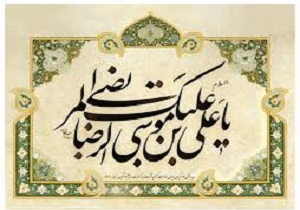 السلام علیک یا علی بن موسی الرضا المرتضی